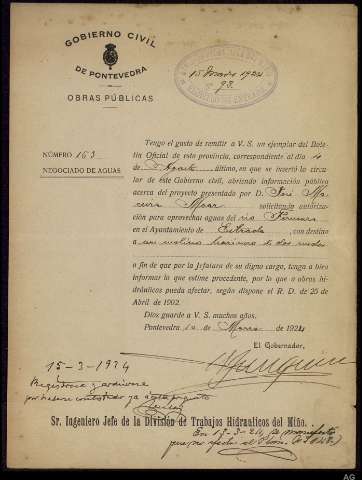 GOBIERNO CIVIL
DE PONTEVEDRA
OBRAS PÚBLICAS
15 Marzo 1924
93.
Tengo el gusto de remitir a V. S. un ejemplar del Bole-
tín Oficial de esta provincia, correspondiente al día 4
NÚMERO 163
de Agosto último, en que se insertó la circu-
NEGOCIADO DE AGUAS
lar de este Gobierno civil, abriendo información pública
acerca del proyecto presentado por D. José
solicitando autoriza-
ción para aprovechar aguas del río
en el Ayuntamiento de Estrada, con destino
a un molino harinero de dos
a fin de que por la Jefatura de su digno cargo, tenga a bien
informar lo que estime procedente, por lo que a obras hi-
dráulicas pueda afectar, según dispone el R. D. de 25 de
Abril de 1902.
Dios guarde a V. S. muchos años.
Pontevedra 10 de Marzo de 1924
El Gobernador,
15-3-1924
Regístrese y archívese
por haberse contestado ya
Sr. Ingeniero Jefe de la División de Trabajos Hidráulicos del Miño.
En 13-3-24, se manifestó
que no afecta al Plan